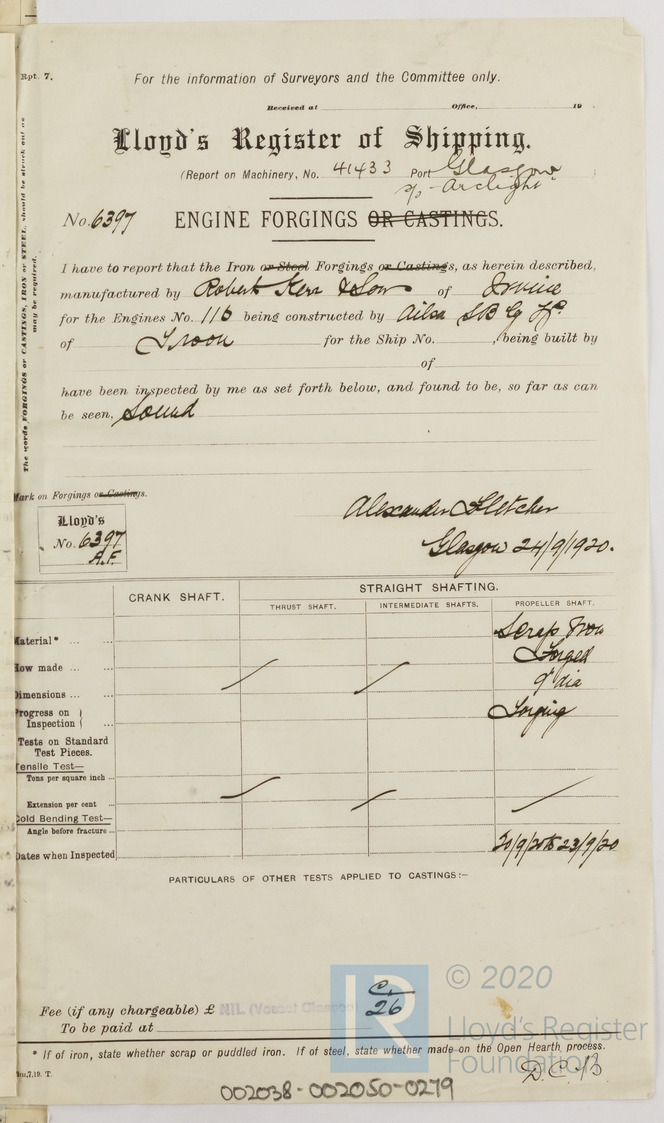 Rpt. 7.
For the information of Surveyors and the Committee only.
Received at Office, 19
Lloyd's Register of Shipping.
(Report on Machinery, No. 41433 Port Glasgow
"Arclight"
No. 6397 ENGINE FORGINGS OR CASTINGS.
The words FORGINGS or CASTINGS, IRON or STEEL, should be struck out as
may be required.
I have to report that the Iron or Steel Forgings or Castings, as herein described,
manufactured by Robert Kerr & Son of Irvine
for the Engines No. 116 being constructed by Ailsa S B Cy Ld.
of Troon for the Ship No. , being built by
of
have been inspected by me as set forth below, and found to be, so far as can
be seen, Sound
Mark on Forgings or Castings.
Lloyd's
No. 6397
A.F.
Alexander Fletcher
Glasgow 24/9/1920.
CRANK SHAFT. STRAIGHT SHAFTING.
THRUST SHAFT. INTERMEDIATE SHAFTS. PROPELLER SHAFT.
Material* ... ... Scrap Iron
How made ... ... Forged
Dimensions ... ... 9" dia
Progress on } Forging
Inspection } ...
Tests on Standard
Test Pieces.
Tensile Test—
Tons per square inch ...
Extension per cent ...
Cold Bending Test—
Angle before fracture ...
Dates when Inspected /9/20 to 23/9/20
PARTICULARS OF OTHER TESTS APPLIED TO CASTINGS:—
Fee (if any chargeable) £ NIL (Vessel Classed) C.
26
To be paid at
* If of iron, state whether scrap or puddled iron. If of steel, state whether made on the Open Hearth process.
,7,19. T.
D.C. 13
002038-002050-0279
LR
© 2020
Lloyd's Register
Foundation